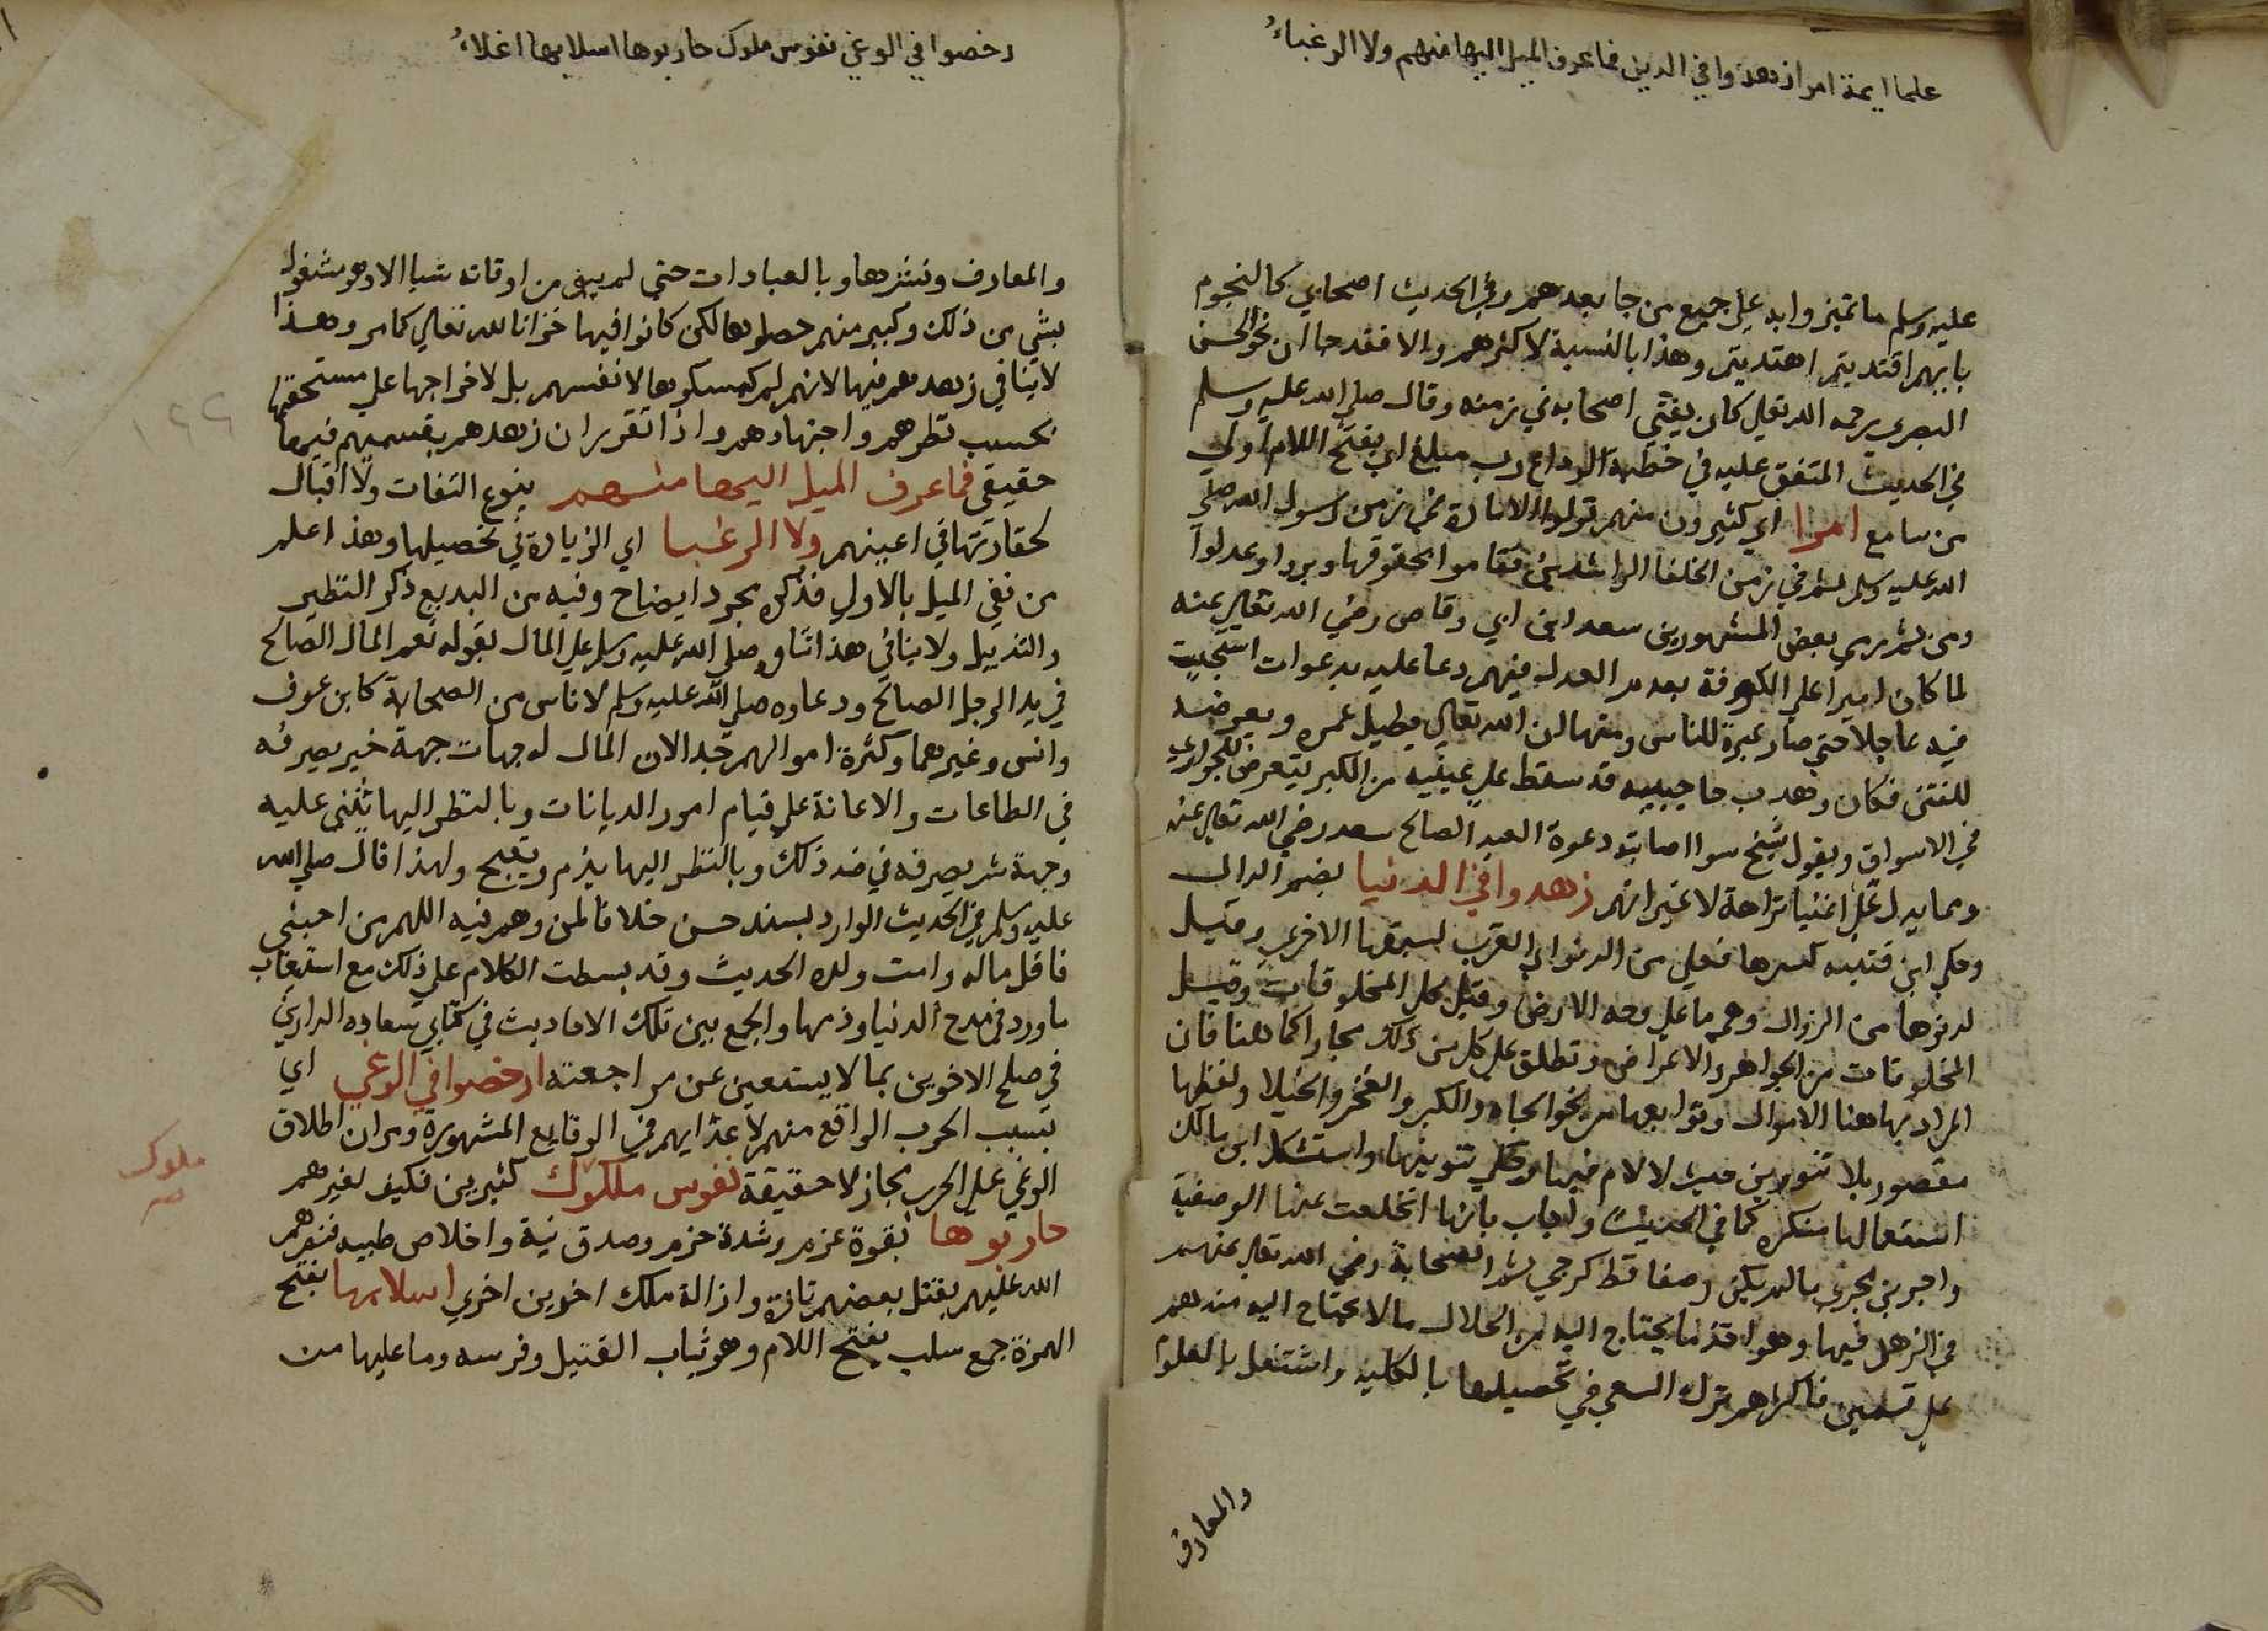 علما ايمة امرا زهدوا في الدين فما عرف الميل اليها منهم ولا الرغباء
عليه وسلم ما تميزوا به علي جميع من جا بعدهم وفي الحديث اصحابي كالنجوم
بايهم اقتديتم اهتديتم وهذا بالنسبة لاكثرهم والا فقد جا ان نحو الحسن
البصري رحمه الله تعالي كان يفتي اصحابه في زمنه وقال صلي الله عليه وسلم
في الحديث المتفق عليه في خطبة الوداع رب مبلغ اي بفتح اللام اوعي
من سامع امرا اي كثيرون منهم تولوا الامارة في زمن رسول الله صلي
الله عليه وسلم ثم في زمن الخلفا الراشدين فقاموا بحقوقها وعدلوا
ومن ثم رمي بعض المشهورين سعد ابن ابي وقاص رضي الله تعالي عنه
لما كان اميرا علي الكوفة بعدم العدل فيهم دعا عليه بدعوات استجيبت
فيه عاجلا حتي صار عبرة للناس ومنها ان الله تعالي يطيل عمره ويعرضه
للفتن فكان وهدب حاجبيه قد سقط علي عينيه من الكبر يتعرض للجواري
في الاسواق ويقول شيخ سوا اصابته دعوة العبد الصالح سعد رضي الله تعالي عنه
ومما يدل علي اغنيا تراحة لا غير انهم زهدوا في الدنيا بضم الدال
وحكي ابن قتيبه كسرها فعلي من الدنو اي القرب لسبقها الاخري وقيل
لدنوها من الزوال وهي ما علي وجه الارض وقيل كل المخلوقات وقيل
المخلوقات من الجواهر والاعراض وتطلق علي كل من ذلك مجازا كما هنا فان
المراد بها هنا الاموال وتوابعها من نحو الجاه والكبر والفخر والخيلا ولفظها
مقصور بلا تنوين حيث لا لام فيها وحكي تنوينها واستشكل ابن مالك
استعمالها منكره كما في الحديث واجاب بانها انخلعت عنها الوصفية
واجريت مجري ما لم يكن وصفا قط كرجعي ثم الصحابة رضي الله تعالي عنهم
في الزهد فيها وهو اخذ ما يحتاج اليه من الحلال ما لا يحتاج اليه منه هم
علي قسمين فاكثرهم ترك السعي في تحصيلها بالكليه واشتغل بالعلوم
والمعارف
رخصوا في الوغي نفوس ملوك حاربوها اسلابها اغلاء
والمعارف ونشرها وبالعبادات حتي لم يبق من اوقاته شيا الا وهو مشغول
بشي من ذلك وكبير منهم حصلوها لكن كانوا فيها خزانا لله تعالي كما مر وهذا
لا ينافي زهدهم فيها لانهم لم يمسكوها لانفسهم بل لاخراجها علي مستحقها
بحسب نظرهم واجتهادهم واذا تقرر ان زهدهم بقسميهم فيها
حقيقي فما عرف الميل اليها منهم بنوع التفات ولا اقبال
لحقارتها في اعينهم ولا الرغبا اي الزيادة في تحصيلها وهذا علم
من نفي الميل بالاولي فذكره مجرد ايضاح وفيه من البديع ذكر النظير
والتذييل ولا ينافي هذا ثناوه صلي الله عليه وسلم علي المال بقوله نعم المال الصالح
في يد الرجل الصالح ودعاوه صلي الله عليه وسلم لاناس من الصحابة كابن عوف
وانس وغيرهما وكثرة اموالهم جدا لان المال له جهات جهة خير يصرفه
في الطاعات والاعانة علي قيام امور الديانات وبالنظر اليها يثني عليه
وجهة شر يصرفه في ضد ذلك وبالنظر اليها يذم ويقبح ولهذا قال صلي الله
عليه وسلم في الحديث الوارد بسند حسن خلافا لمن وهم فيه اللهم من احبني
فاقل ماله وامت ولده الحديث وقد بسطت الكلام علي ذلك مع استيعاب
ما ورد في مدح الدنيا وذمها والجمع بين تلك الاحاديث في كتابي سعاده الدارين
في صلح الاخوين بما لا يستغني عن مراجعته ارخصوا في الوغي اي
بسبب الحرب الواقع منهم لاعدايهم في الوقايع المشهورة ومر ان اطلاق
الوغي علي الحرب مجاز لا حقيقة نفوس ملكوك كثيرين فكيف لغيرهم
ملوك
حاربوها بقوة عزم وشدة حزم وصدق نية واخلاص طبيه فنصرهم
الله عليهم بقتل بعضهم تارة وازالة ملك اخرين اخري اسلابها بفتح
الهمزة جمع سلب بفتح اللام وهو ثياب القتيل وفرسه وما عليها من